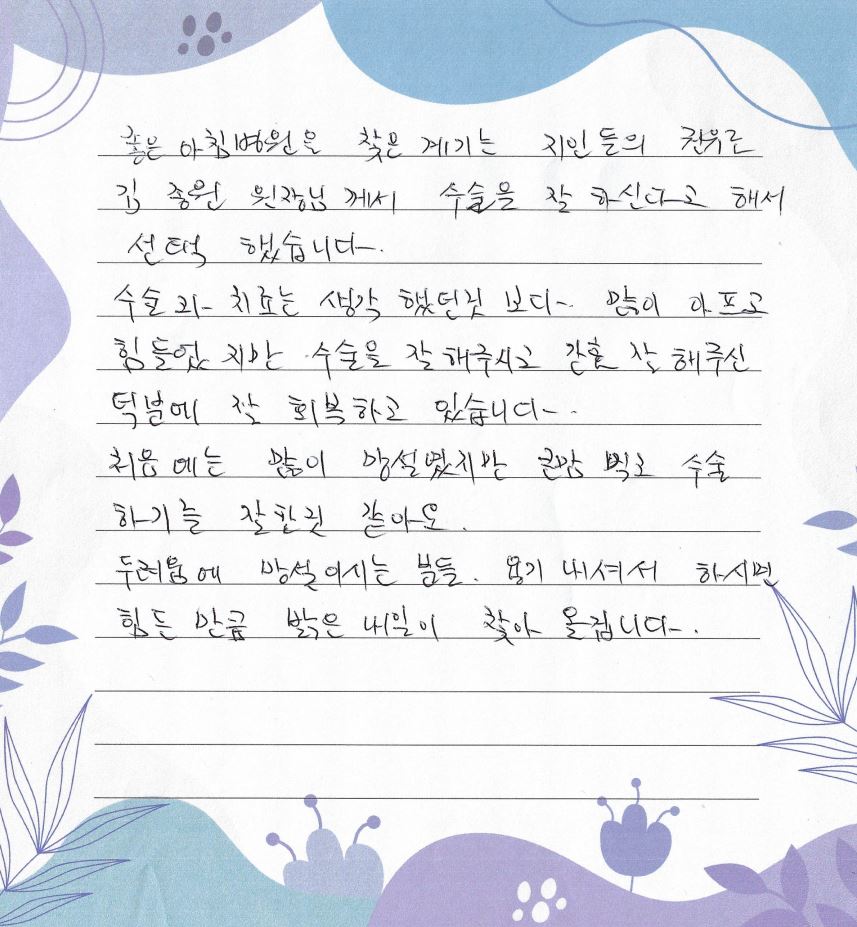 좋은 아침병원을 찾은 계기는 지인들의 권유로
김 종원 원장님 께서 수술을 잘 하신다고 해서
선택 했습니다.
수술 과 치료는 생각 했던것 보다 많이 아프고
힘들었 지만 수술을 잘해주시고 간호 잘 해주신
덕분에 잘 회복하고 있습니다.
처음 에는 많이 망설였지만 큰맘 먹고 수술
하기를 잘한것 같아요.
두려움에 망설이시는 분들. 용기 내셔서 하시면
힘든 만큼 밝은 내일이 찾아 올겁니다.